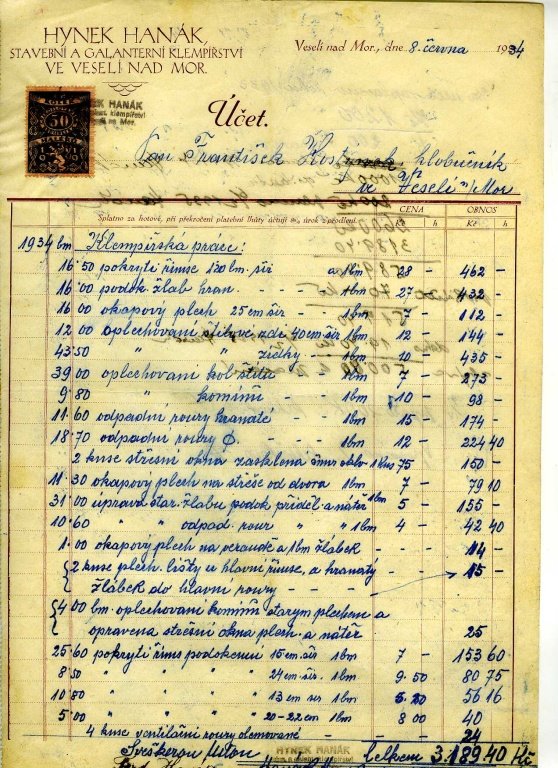 HYNEK HANÁK,
STAVEBNÍ A GALANTERNÍ KLEMPÍŘSTVÍ
VE VESELÍ NAD MOR.
Veselí nad Mor., dne 8. června 1934
50
HYNEK HANÁK
klempířství
Účet.
Pan František klobučník
ve Veselí n/Mor
Splatno za hotové, při překročení platební lhůty účtuji 8% úrok z prodlení.
CENA OBNOS
h Kč h
1934 bm Klempířská práce:
16 50 pokrytí římse 120 bm. šíř a 1bm 28 - 462 -
16 00 podok žlab hran. - - - - 1bm 27 - 432 -
16 00 okapový plech 25 cm šíř - 1bm 7 - 112
12 00 oplechování zdi 40 cm šíř 1bm 12 - 144 -
43 50 " " zídky - - 1bm 10 - 435 -
39 00 oplechování kol štítu 1bm 7 - 273 -
9 80 " komínů - - 1bm 10 - 98 -
11 60 odpadní roury hranaté 1bm 15 - 174 -
18 70 odpadní roury Ø. - - - 1bm 12 - 224 40
2 kuse střešní okna zasklená 1 kus 75 150 -
11 30 okapový plech na střeše od dvora 1bm 7 - 79 10
31 00 úprava star. žlabu podok příděl. a nátěr 1bm 5 - 155 -
10 60 " " odpad. rour " " 1bm 4 - 42 40
1 00 okapový plech na verandě a 1bm žlábek - - - - 14 -
2 kuse plech. lišty u hlavní římse, a hranatý 15 -
žlábek do hlavní roury - - - -
4 00 bm. oplechování komínů starým plechem a
opravena střešní okna plech. a nátěr 25
25 60 pokrytí říms podokenní 15 cm. šíř 1bm 7 - 153 60
8 50 " " " 24 cm šír. 1bm 9 50 80 75
10 80 " " " 13 cm šír 1bm 5 20 56 16
5 00 " " " 20-22 cm 1bm 8 00 40
4 kuse ventilační roury - - - - 24
HYNEK HANÁK
Celkem 3.189 40 Kč